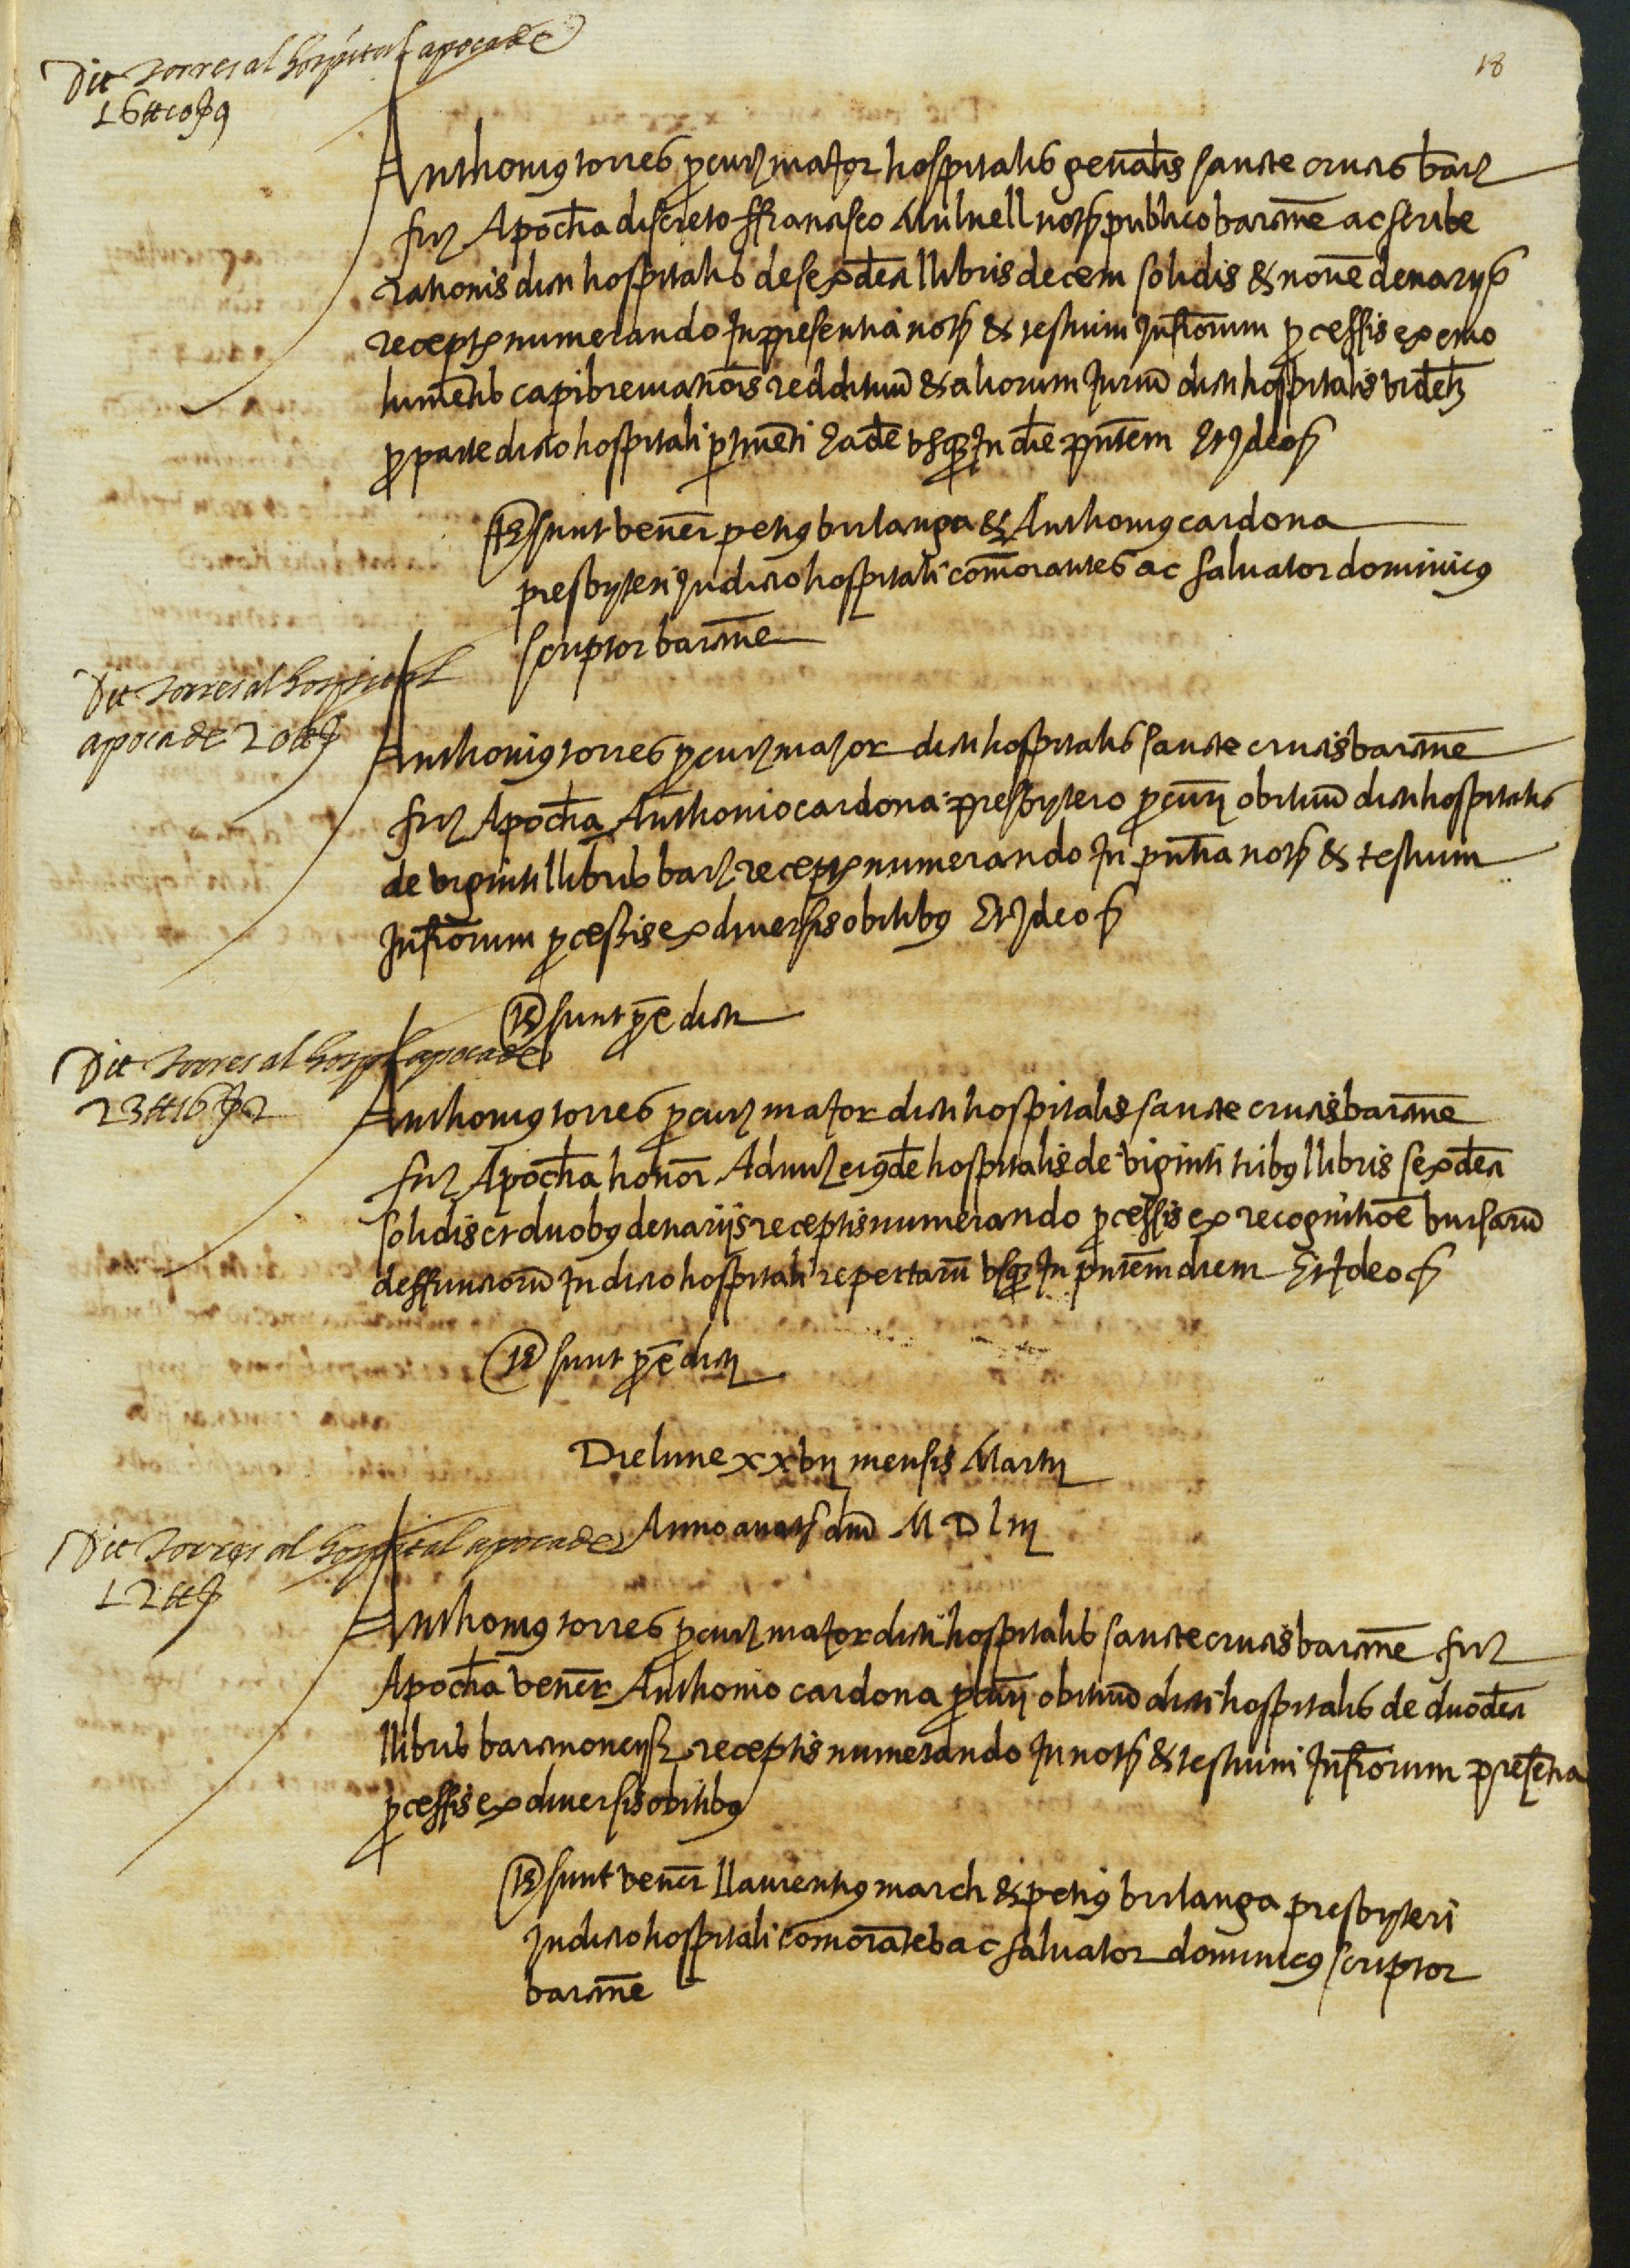 18
Dit torres al hospital apoca de
16 ll 10 s 9
Anthonius torres procur maior hospitalis generalis sancte crucis barc
fir Apocha discreto ffrancisco Mulnell not publico barcinone ac scribe
rationis dicti hospitalis de sexdecim llibris decem solidis & novem denarijs
receptis numerando In presentia not & testium Infrorum processis ex emo
lumentis capibrevationis reddituum & aliorum Jurium dicti hospitalis videlz
pro parte dicto hospitali pertinenti hac de usque In die pntem Et Ideo
Ts sunt vener petrus burlanga & Anthonius cardona
presbyteri In dicto hospitali comorantes ac salvator dominicus
scriptor barcine
Dit torres al hospital
apoca de 20 ll s
Anthonius torres procur maior dicti hospitalis sancte crucis barcine
fir Apocha Anthonio cardona presbytero procuri obituum dicti hospitalis
de viginti llibris barc receptis numerando In pntia not & testium
Infrorum processis ex diversis obitibus Et Ideo
Ts sunt proxe dicti
Dit torres al hospital apoca de
23 ll 16 s 2
Anthonius torres procur maior dicti hospitalis sancte crucis barcine
fir Apocha honor Admi eiusdem hospitalis de viginti tribus llibris sexdecim
solidis et duobus denarijs receptis numerando processis ex recognitione bursarum
deffunctorum In dicto hospitali repertarum usque In pntem diem Et Ideo
Ts sunt proxe dicti
Die lune xxvij mensis Martij
Anno a nat dni M D l iij
Dit torres al hospital apoca de
12 ll s
Anthonius torres procur maior dicti hospitalis sancte crucis barcine fir
Apocha vener Anthonio cardona procuri obituum dicti hospitalis de duodecim
llibris barcinonensis receptis numerando In not & testium Infrorum presentia
processis ex diversis obitibus
Ts sunt vener llaurentius march & petrus burlanga presbyteri
In dicto hospitali comorantes ac salvator dominicus scriptor
barcine